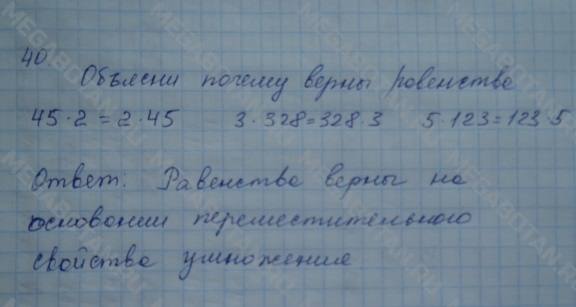 40.
Объясни почему верны равенства
45·2=2·45 3·328=328·3 5·123=123·5
Ответ: Равенства верны на
основании переместительного
свойства умножения